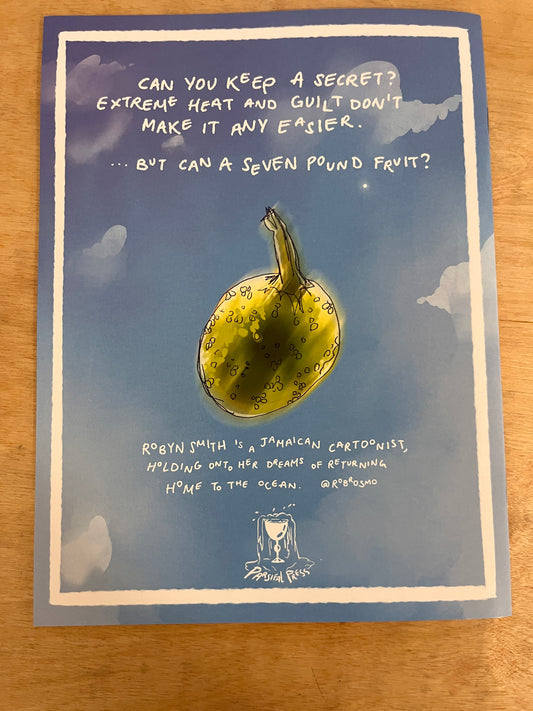 CAN YOU KEEP A SECRET?
EXTREME HEAT AND GUILT DON'T
MAKE IT ANY EASIER.
... BUT CAN A SEVEN POUND FRUIT?
ROBYN SMITH IS A JAMAICAN CARTOONIST,
HOLDING ONTO HER DREAMS OF RETURNING
HOME TO THE OCEAN. @ROBROSMO
PARSIFAL PRESS